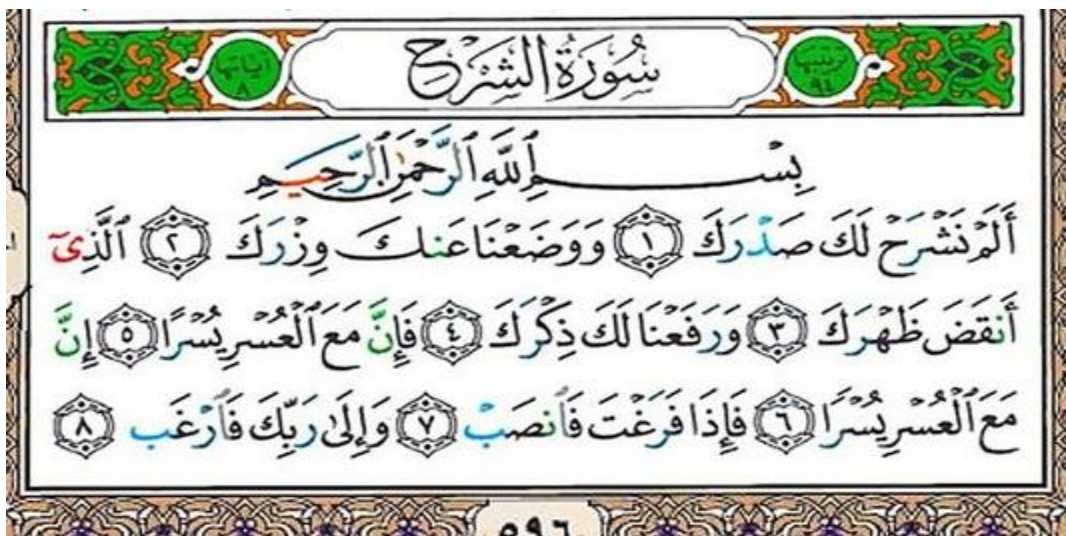 ترتيبها ٩٤ سُورَةُ الشَّرْحِ آياتها ٨
بِسْمِ ٱللَّهِ ٱلرَّحْمَٰنِ ٱلرَّحِيمِ
أَلَمْ نَشْرَحْ لَكَ صَدْرَكَ ١ وَوَضَعْنَا عَنكَ وِزْرَكَ ٢ ٱلَّذِىٓ
أَنقَضَ ظَهْرَكَ ٣ وَرَفَعْنَا لَكَ ذِكْرَكَ ٤ فَإِنَّ مَعَ ٱلْعُسْرِ يُسْرًا ٥ إِنَّ
مَعَ ٱلْعُسْرِ يُسْرًا ٦ فَإِذَا فَرَغْتَ فَٱنصَبْ ٧ وَإِلَىٰ رَبِّكَ فَٱرْغَب ٨
٥٩٦